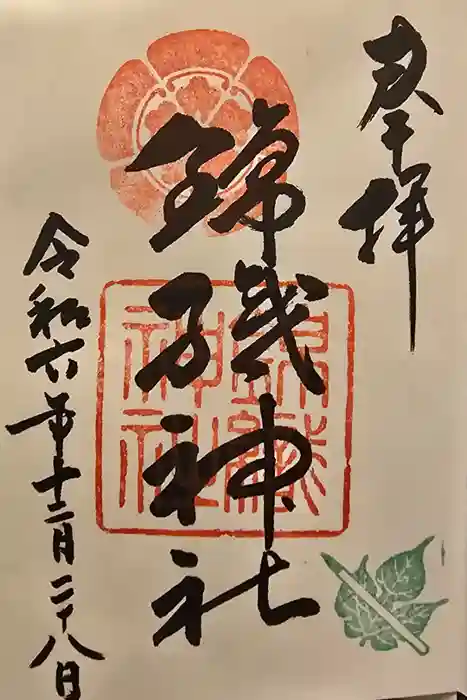 奉拝
錦織神社
令和六年十二月二十八日
錦織
神社